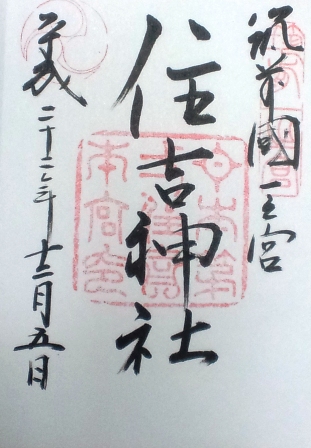 筑前國一之宮
住吉神社
平成二十二年十二月五日